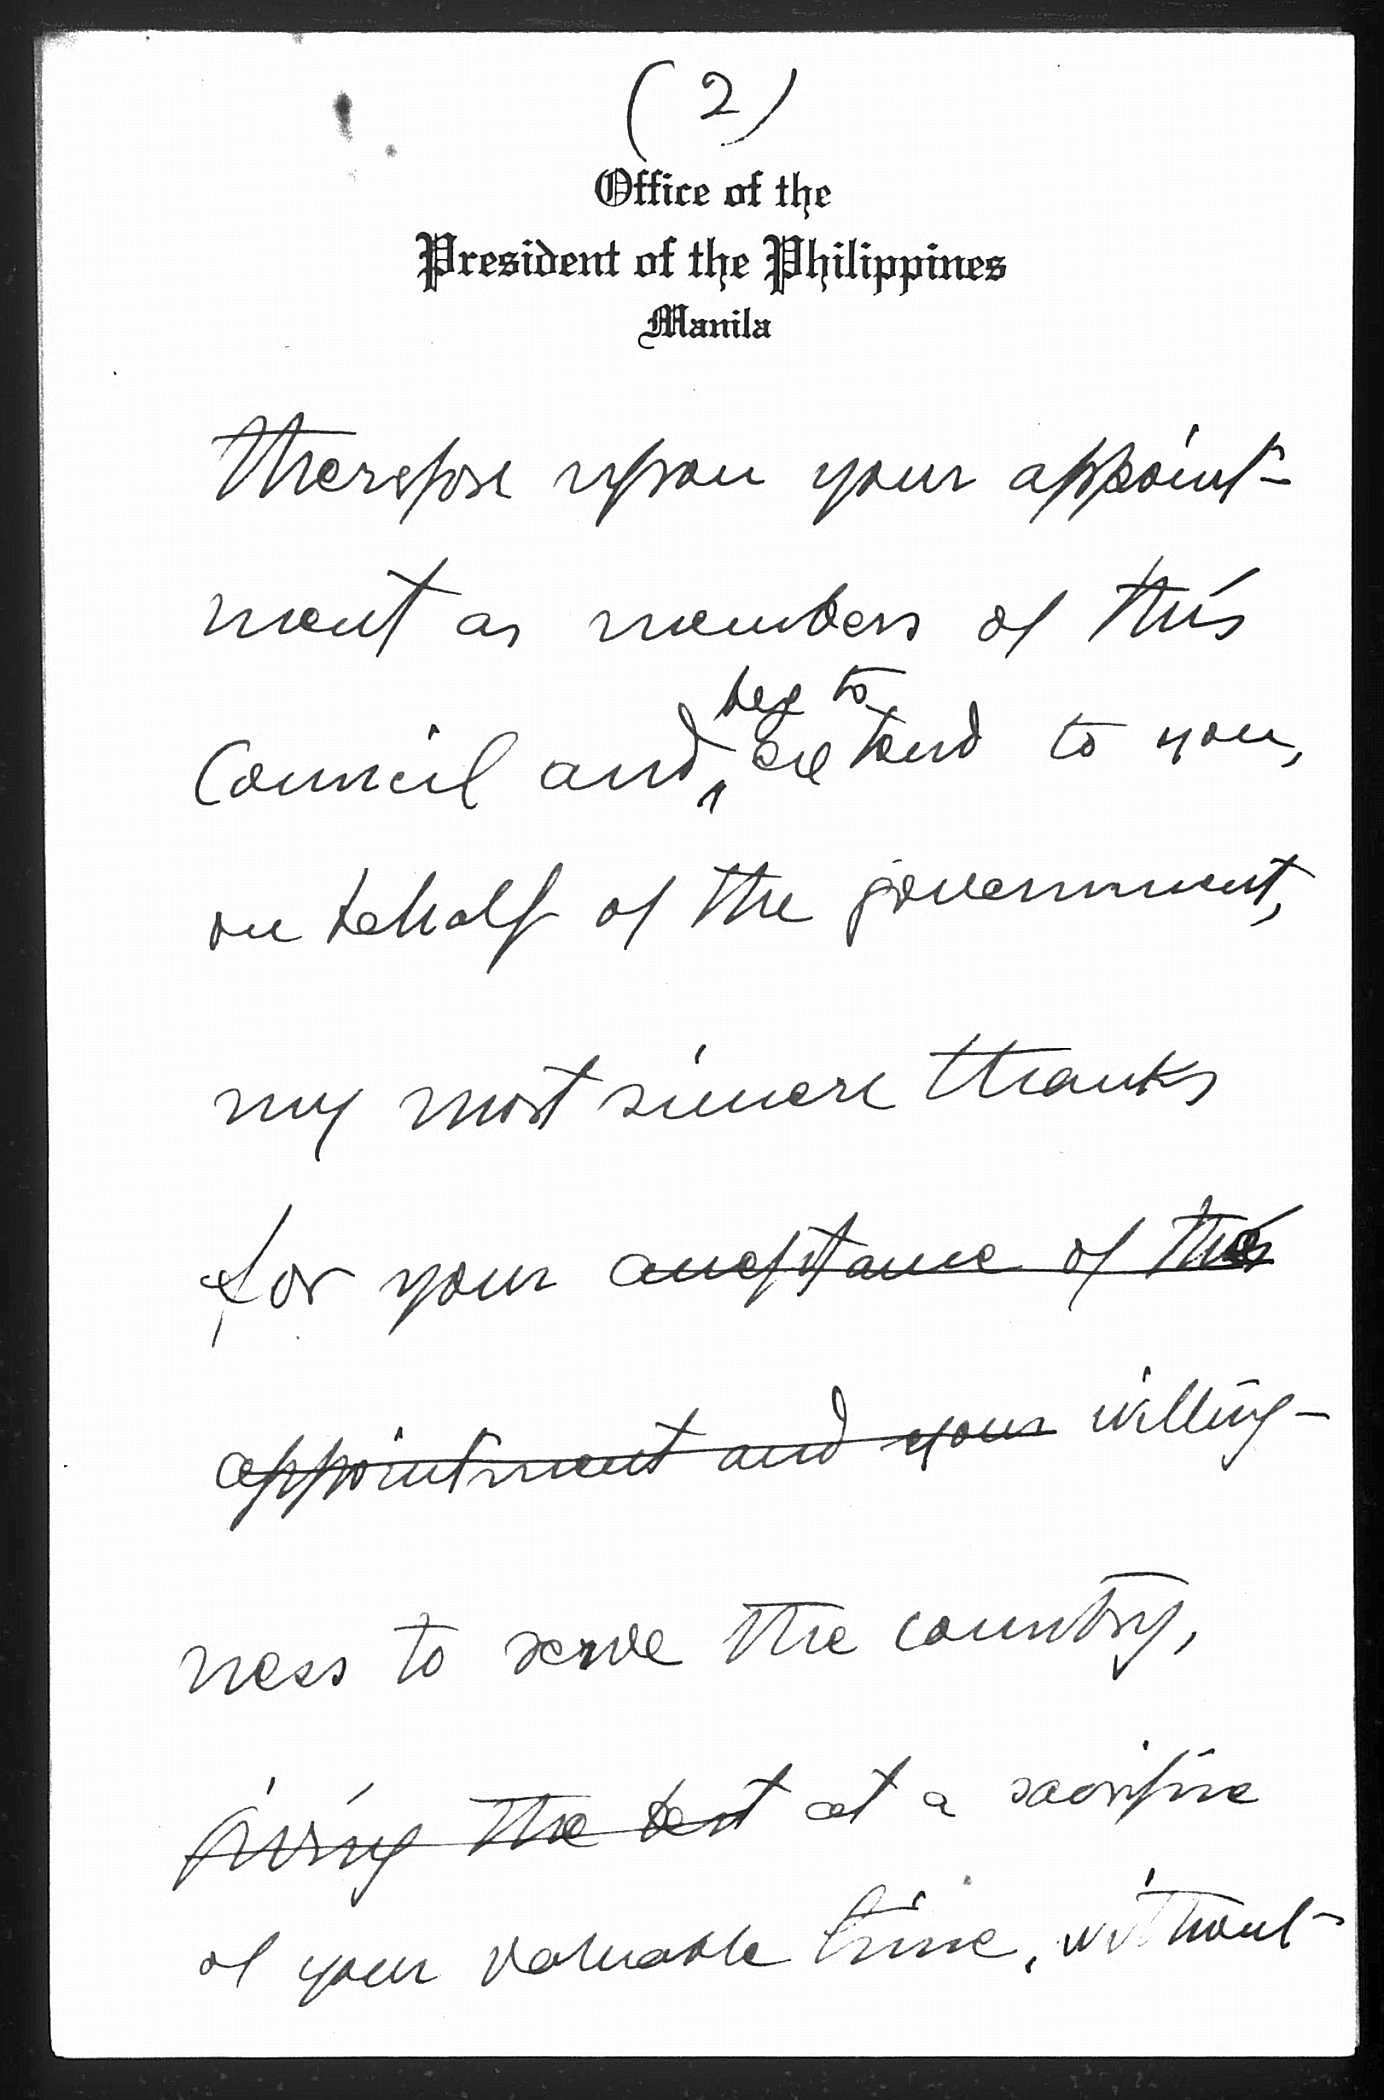 (2)
Office of the
President of the Philippines
Manila
therefore upon your appoint-
ment as members of this
beg to
Council and extend to you,
on behalf of the government,
my most sincere thanks
for your acceptance of this
appointment and your willing-
ness to serve the country,
giving the best at a sacrifice
of your valuable time, without